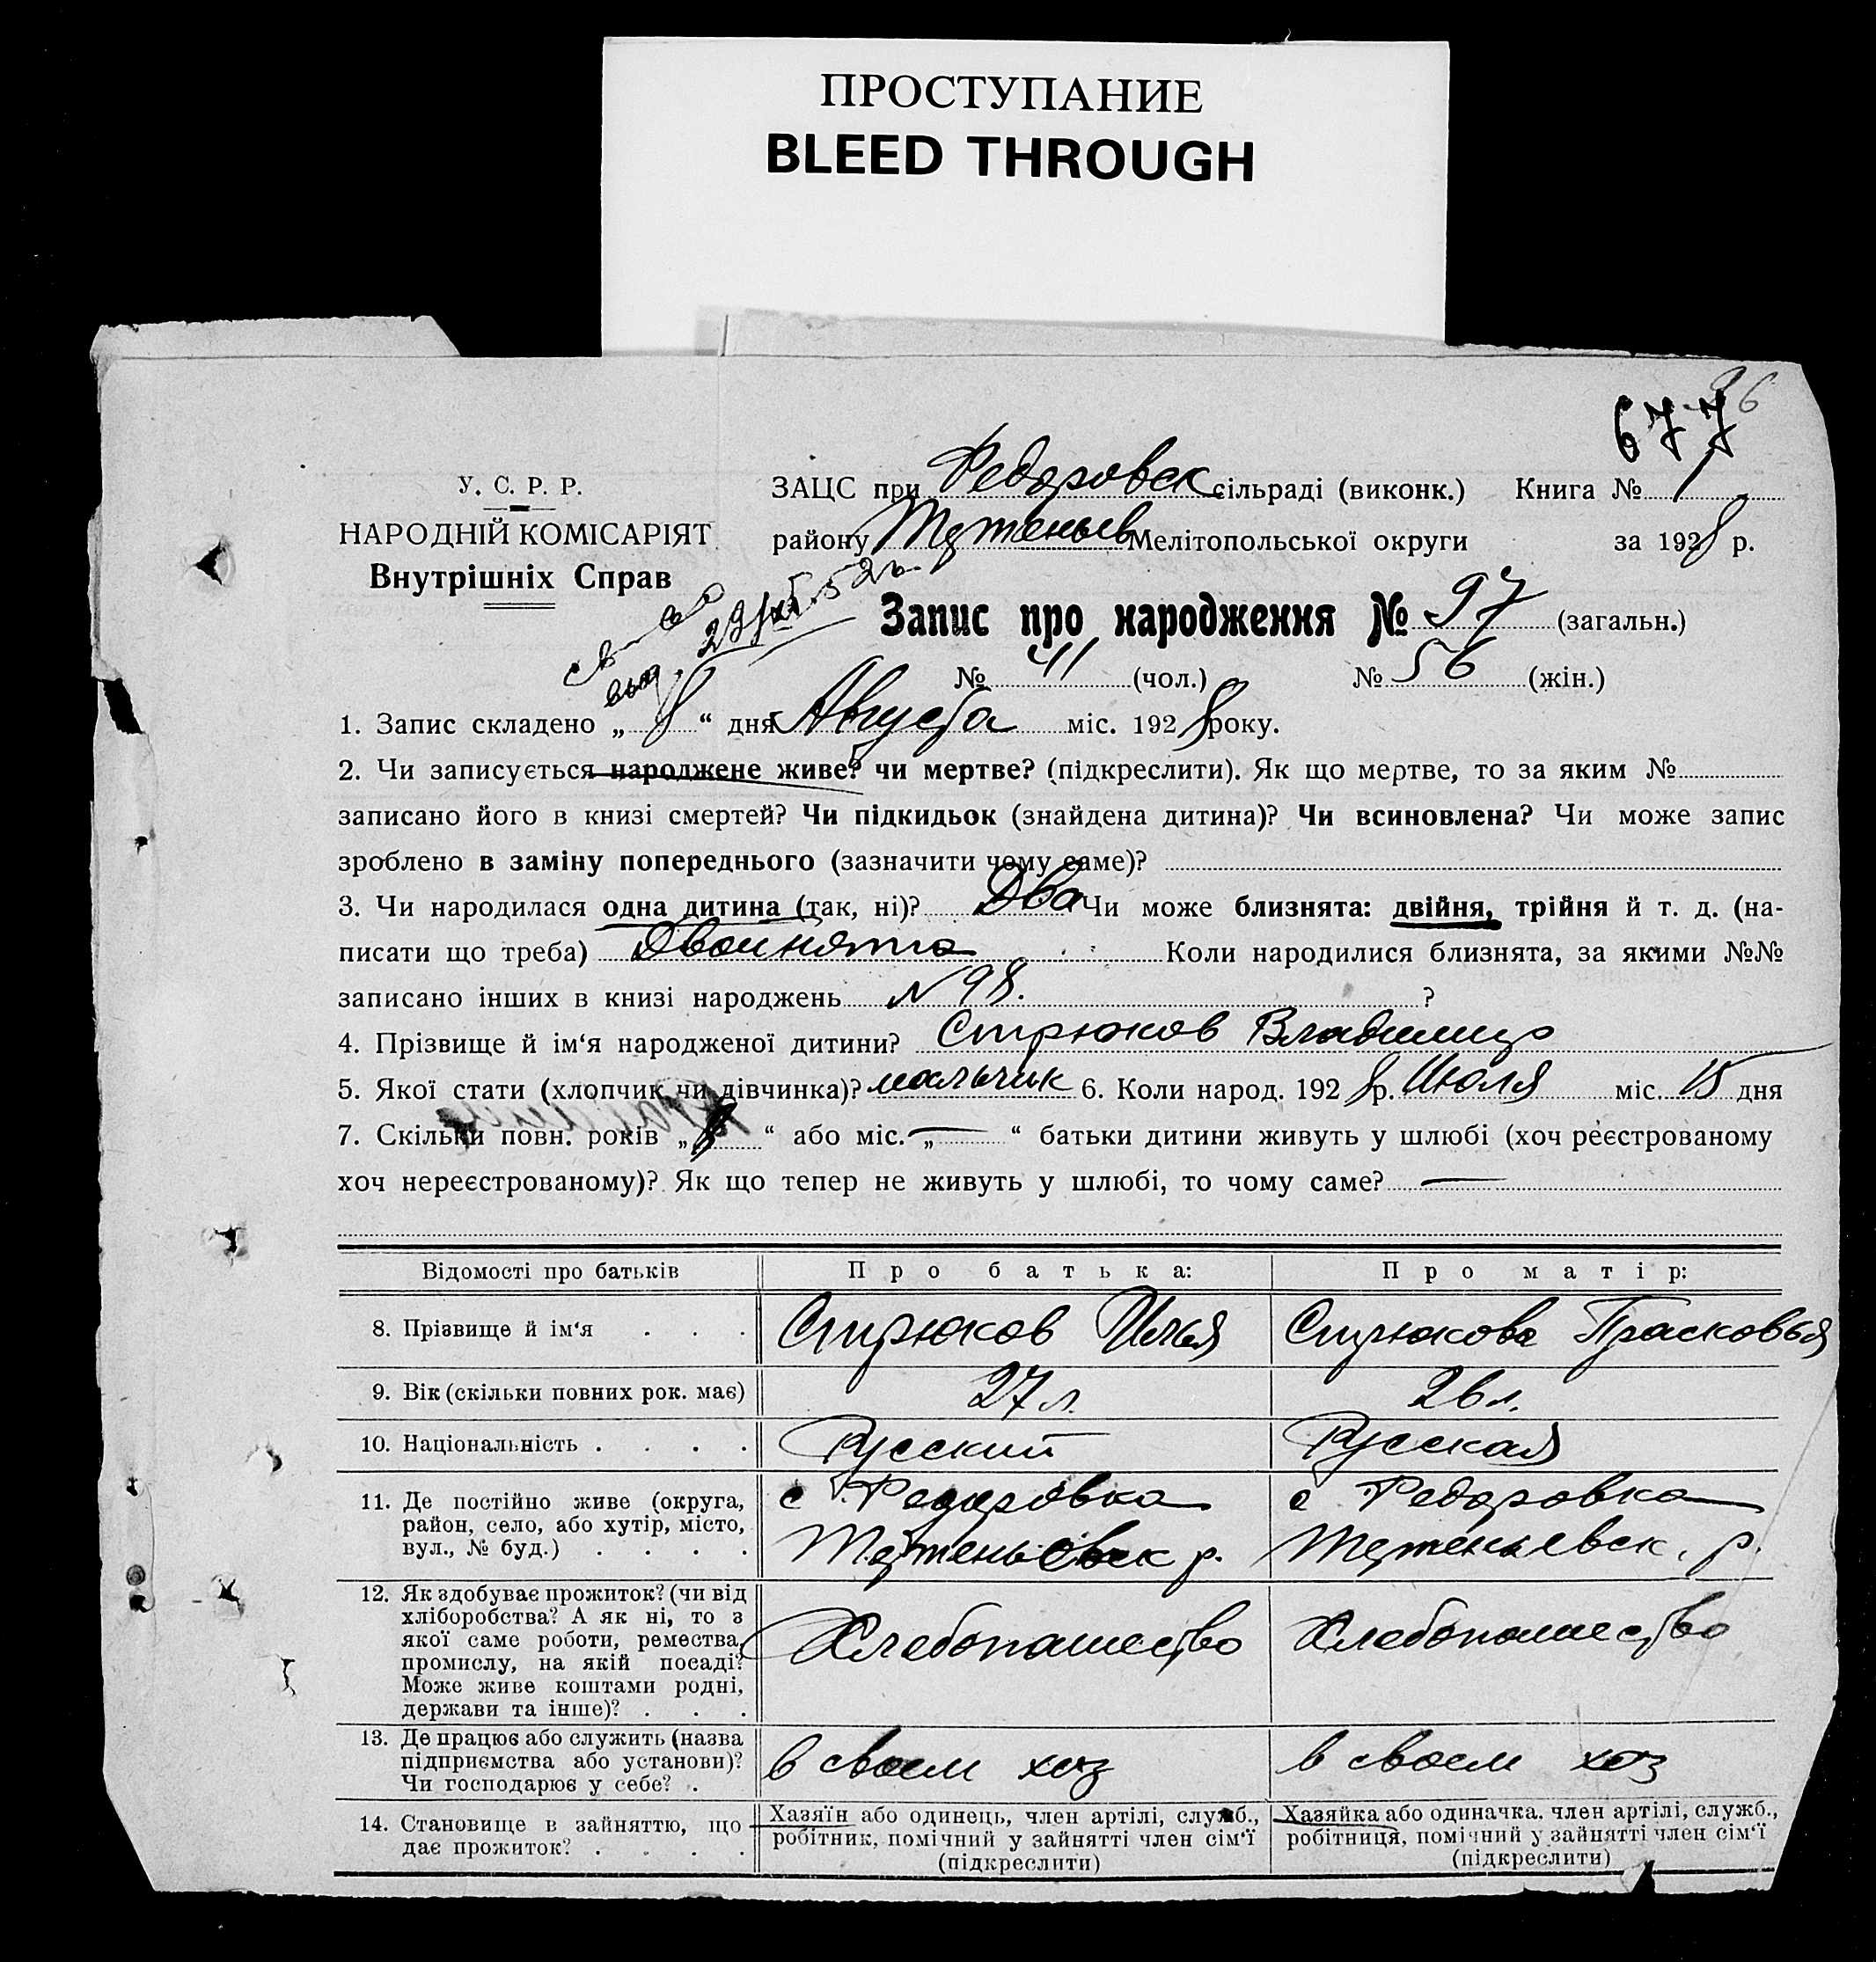 ПРОСТУПАНИЕ
BLEED THROUGH
36
677
У. С. Р. Р.
НАРОДНІЙ КОМІСАРІЯТ
Внутрішніх Справ
ЗАЦС при Федоровск сільраді (виконк.) Книга № 1
району Мелітопольської округи за 1928 р.
св-во
выд. 23/XII 52г.
Запис про народження № 97 (загальн.)
№ 41 (чол.) № 56 (жін.)
1. Запис складено „ 8 “ дня Августа міс. 1928 року.
2. Чи записується народжене живе? чи мертве? (підкреслити). Як що мертве, то за яким №
записано його в книзі смертей? Чи підкидьок (знайдена дитина)? Чи всиновлена? Чи може запис
зроблено в заміну попереднього (зазначити чому саме)?
3. Чи народилася одна дитина (так, ні)? Два Чи може близнята: двійня, трійня й т. д. (на-
писати що треба) Двойнята Коли народилися близнята, за якими №№
записано інших в книзі народжень N 98. ?
4. Прізвище й ім‘я народженої дитини? Стрюков Владимир
5. Якої стати (хлопчик чи дівчинка)? мальчик 6. Коли народ. 1928 р. Июля міс. 15 дня
7. Скільки повн. років „ “ або міс. „ — “ батьки дитини живуть у шлюбі (хоч реєстрованому
хоч нереєстрованому)? Як що тепер не живуть у шлюбі, то чому саме? —
Відомості про батьків Про батька: Про матір:
8. Прізвище й ім‘я . . . Стрюков Илья Стрюкова Прасковья
9. Вік (скільки повних рок. має) 27 л. 26 л.
10. Національність . . . . Русский Русская
11. Де постійно живе (округа, район, село, або хутір, місто, вул., № буд.) . . . . с Федоровка р. с Федоровка р.
12. Як здобуває прожиток? (чи від хліборобства? А як ні, то з якої саме роботи, ремества, промислу, на якій посаді? Може живе коштами родні, держави та інше)? . . . Хлебопашество Хлебопашество
13. Де працює або служить (назва підприємства або установи)? Чи господарює у себе? . в своем хоз в своем хоз
14. Становище в зайняттю, що дає прожиток? . . . . Хазяїн або одинець, член артілі, служб., робітник, помічний у зайнятті член сім‘ї (підкреслити) Хазяйка або одиначка. член артілі, служб., робітниця, помічний у зайнятті член сім‘ї (підкреслити)